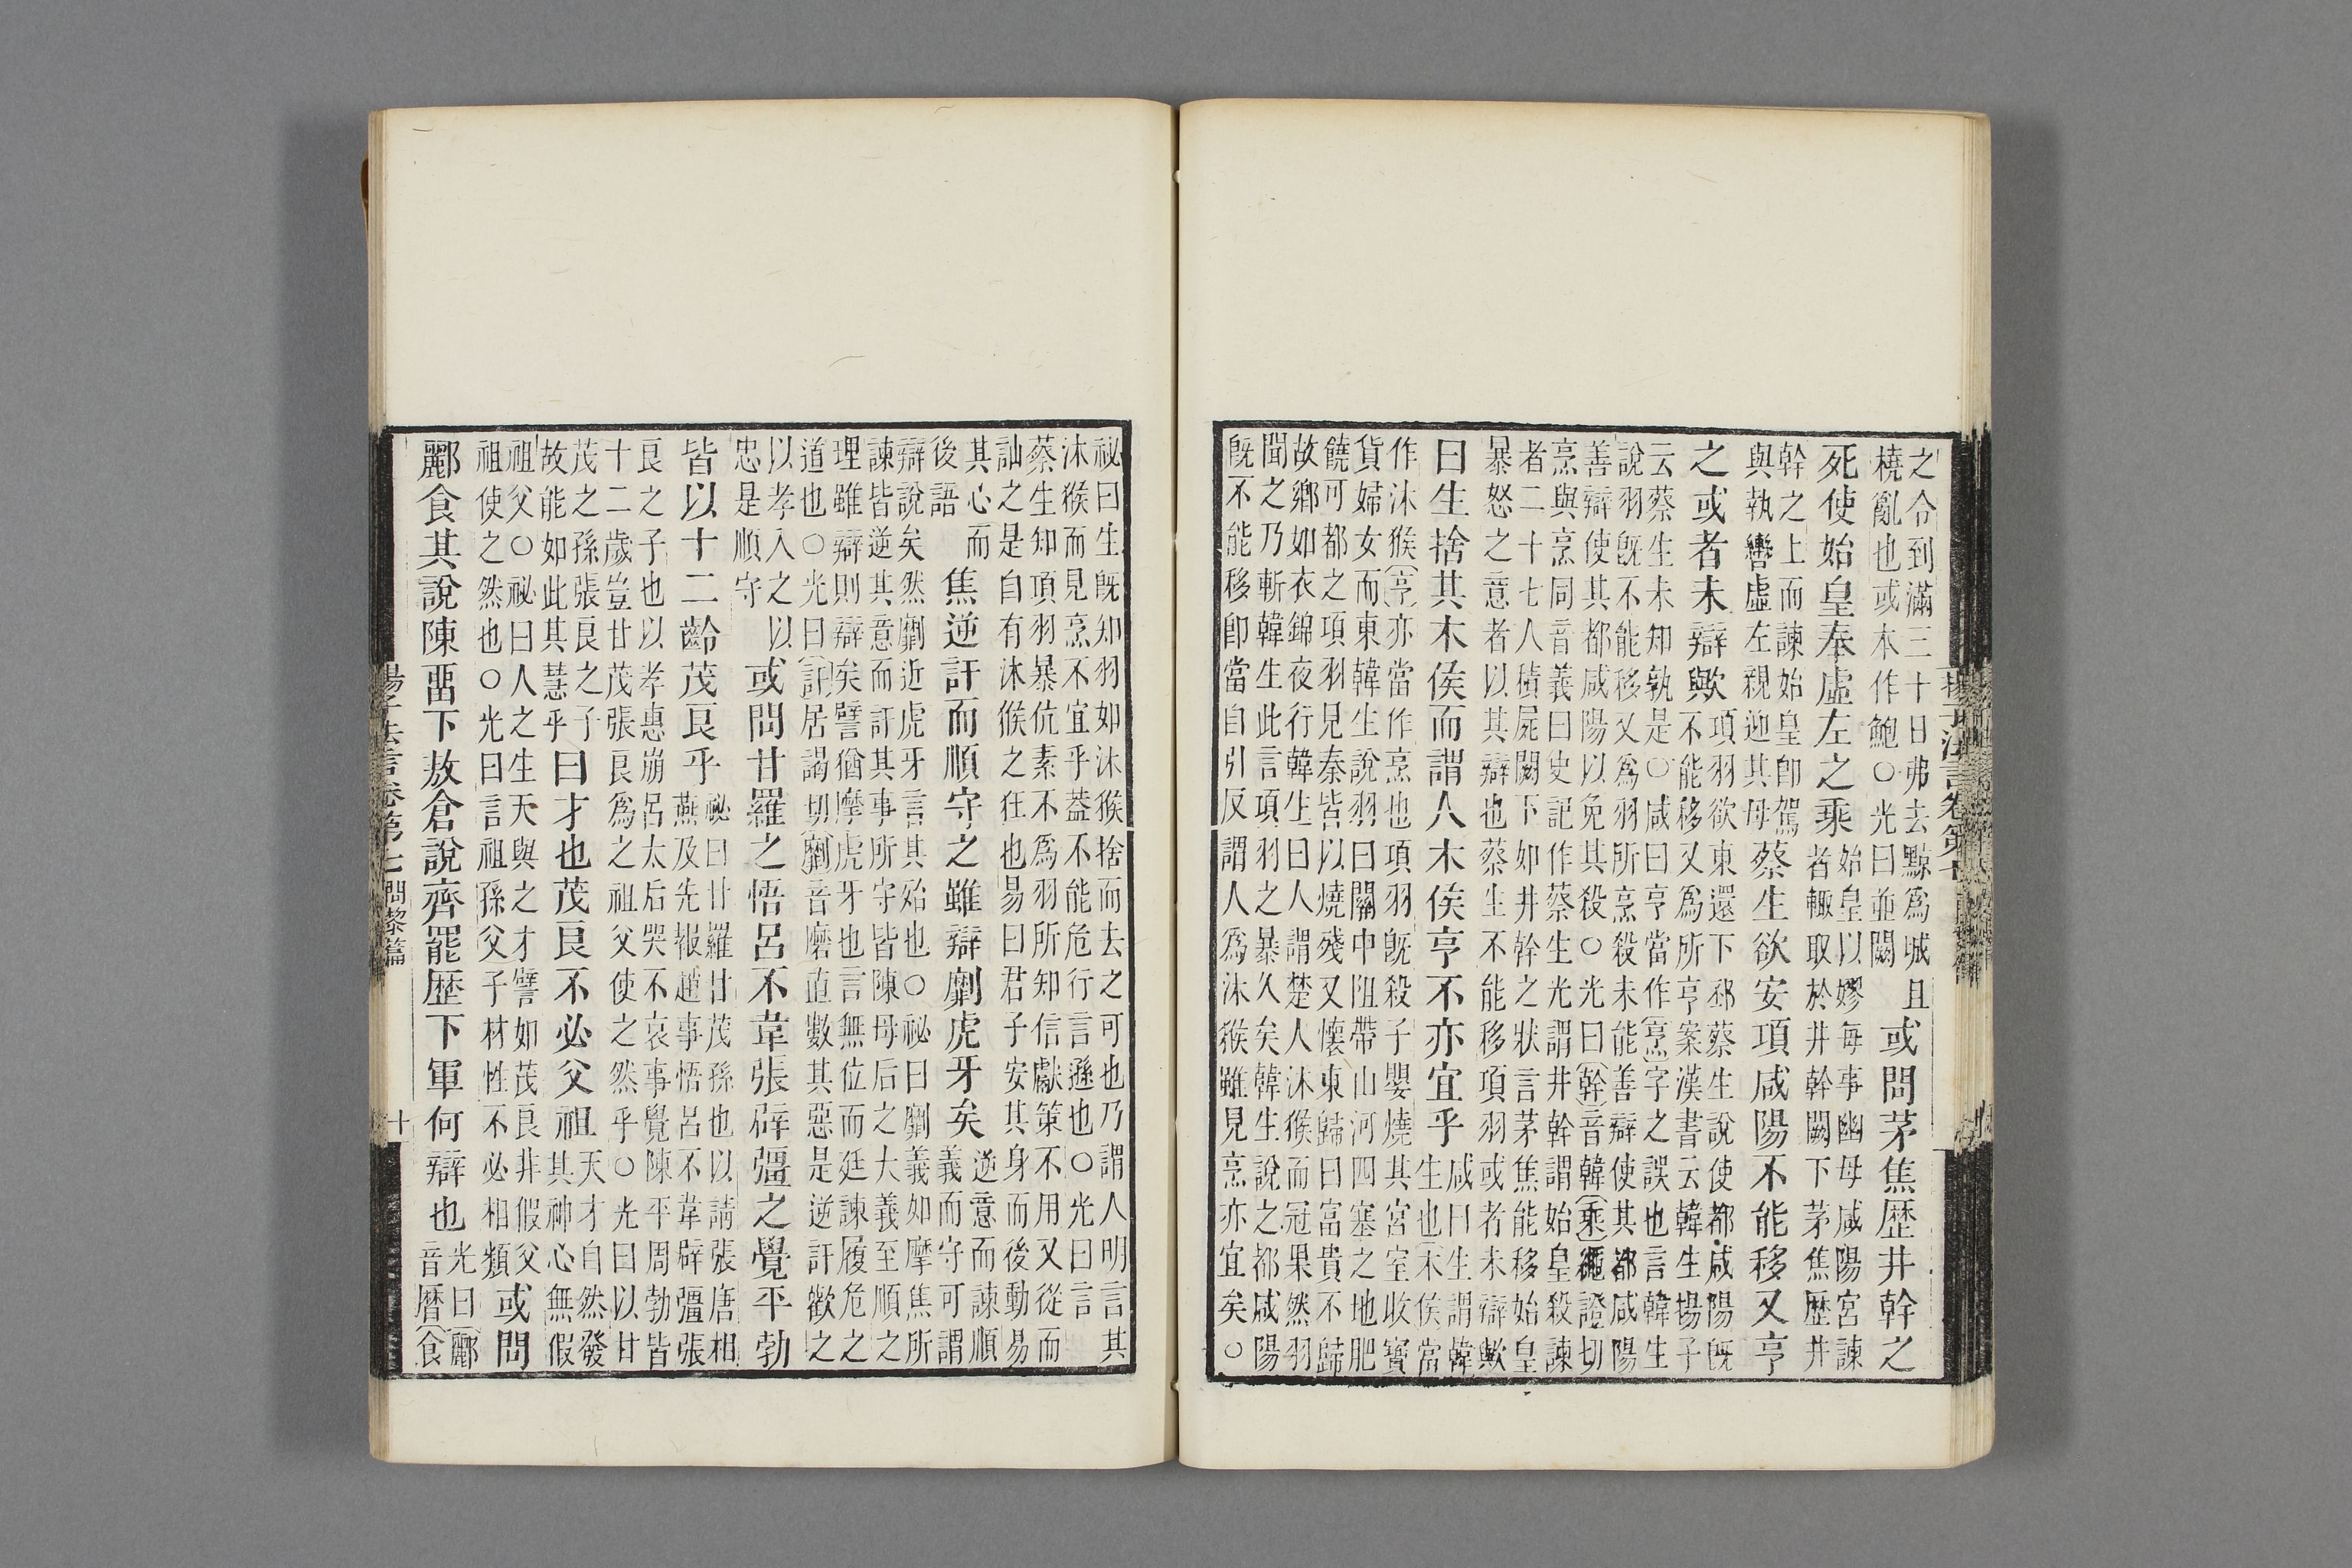 之令到滿三十日弗去黥為城且
橈亂也或本作鮑○光曰並闕
或問茅焦歷井幹之
死使始皇奉虛左之乘
始皇以嫪毐事幽母咸陽宮諫
者輙取於井幹闕下茅焦歷井
幹之上而諫始皇卽駕
與執轡虛左親迎其母
蔡生欲安項咸陽不能移又亨
之或者未辯歟
項羽欲東還下邳蔡生說使都咸陽旣
不能移又為所亨案漢書云韓生揚子
云蔡生未知孰是○咸曰亨當作(烹)字之誤也言韓生
說羽旣不能移又為羽所烹殺未能善辯使其都咸陽
善辯使其都咸陽以免其殺○光曰(幹)音韓(乘)繩證切
烹與烹同音義曰史記作蔡生光謂井幹謂始皇殺諫
者二十七人積屍闕下如井幹之狀言茅焦能移始皇
暴怒之意者以其辯也蔡生不能移項羽或者未辯歟
曰生捨其木侯而謂人木侯亨不亦宜乎
咸曰生謂韓
生也(木侯當
作沐猴(亨)亦當作烹也項羽旣殺子嬰燒其宮室收寳
貨婦女而東韓生說羽曰關中阻帶山河四塞之地肥
饒可都之項羽見秦皆以燒殘又懷東歸曰富貴不歸
故鄉如衣錦夜行韓生曰人謂楚人沐猴而冠果然羽
聞之乃斬韓生此言項羽之暴久矣韓生說之都咸陽
旣不能移卽當自引反謂人為沐猴雖見烹亦宜矣○
祕曰生旣知羽如沐猴捨而去之可也乃謂人明言其
沐猴而見烹不宜乎葢不能危行言遜也○光曰言
蔡生知項羽暴伉素不為羽所知信獻策不用又從而
訕之是自有沐猴之狂也易曰君子安其身而後動易
其心而
後語
焦逆訐而順守之雖辯劘虎牙矣
逆意而諫順
義而守可謂
辯說矣然劘近虎牙言其殆也○祕曰劘義如摩焦所
諫皆逆其意而訐其事所守皆陳母后之大義至順之
理雖辯則辯矣譬猶摩虎牙也言無位而廷諫履危之
道也○光曰(訐)居謁切(劘)音磨直數其惡是逆訐歡之
以孝入之以
忠是順守
或問甘羅之悟呂不韋張辟彊之覺平勃
皆以十二齡茂良乎
祕曰甘羅甘茂孫也以請張唐相
燕及先報趙事悟呂不韋辟彊張
良之子也以孝惠崩呂太后哭不哀事覺陳平周勃皆
十二歲豈甘茂張良為之祖父使之然乎○光曰以甘
茂之孫張良之子
故能如此其慧乎
曰才也茂良不必父祖
天才自然發
其神心無假
祖父○祕曰人之生天與之才譬如茂良非假父
祖使之然也○光曰言祖孫父子材性不必相類
或問
酈食其說陳畱下敖倉說齊罷歷下軍何辯也
光曰(酈
音曆(食
揚子法言卷第七 問黎篇 十